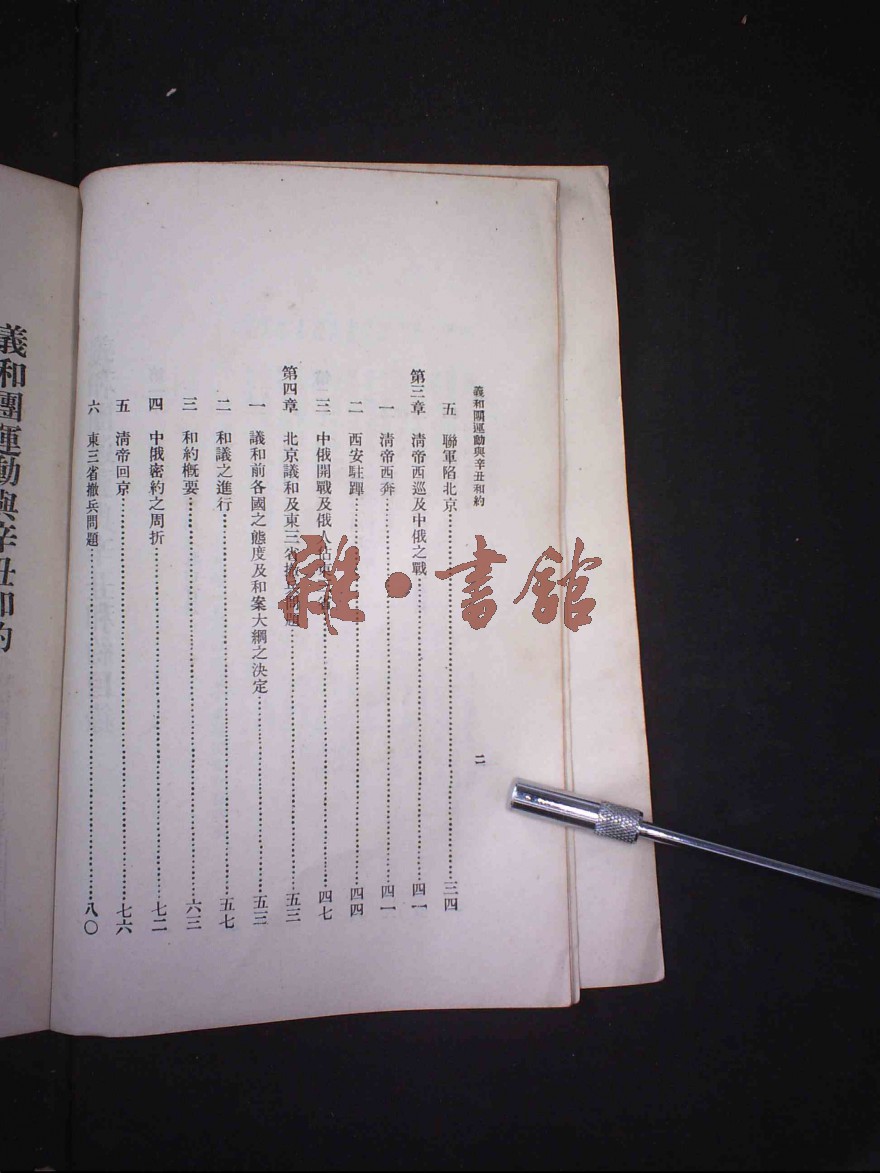 義和團運動與辛丑和約
二
五 聯軍陷北京 三四
第三章 淸帝西巡及中俄之戰 四一
一 淸帝西奔 四一
二 西安駐蹕 四四
三 中俄開戰及俄人佔 四七
第四章 北京議和及東三省撤兵問題 五三
一 議和前各國之態度及和案大綱之決定 五三
二 和議之進行 五七
三 和約概要 六三
四 中俄密約之周折 七二
五 淸帝回京 七六
六 東三省撤兵問題 八〇
義和團運動與辛丑和約
雜·書館